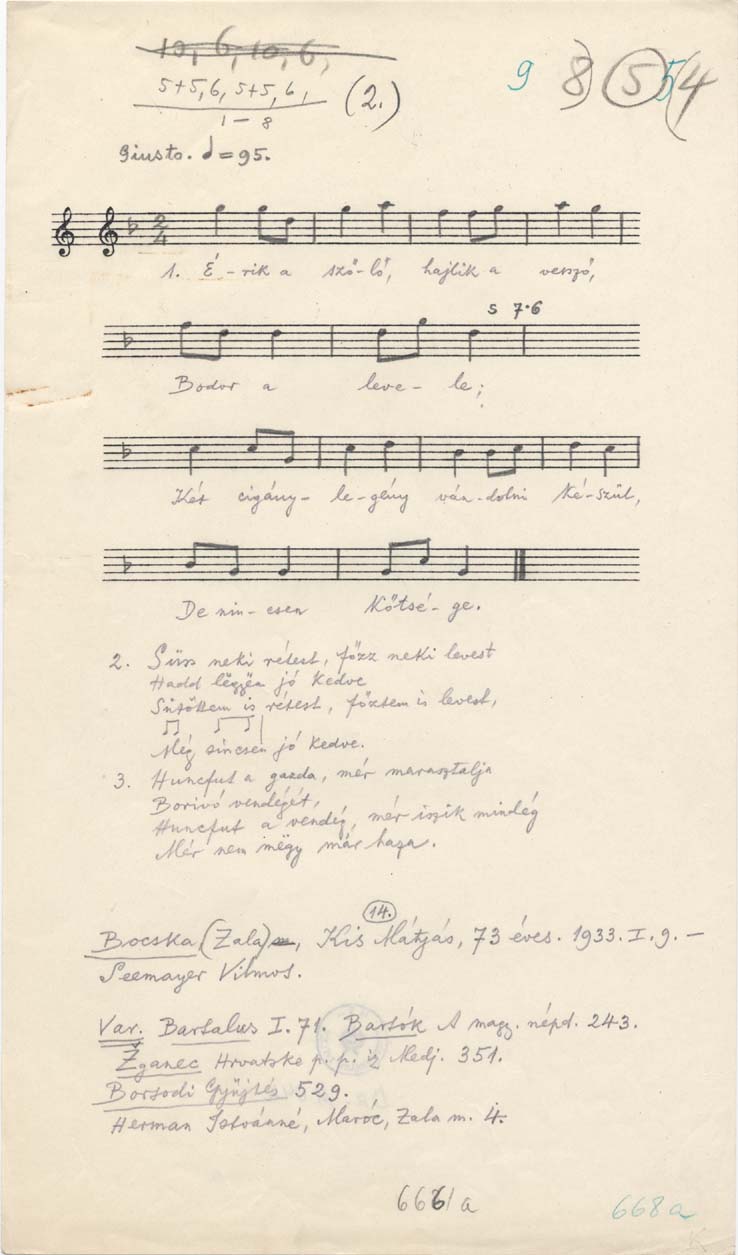 10, 6, 10, 6,
5+5, 6, 5+5, 6,
1 – 8
(2.)
9 8) (5) 5 (4
Giusto. ♩=95.
2
4
1. É-rik a sző-lő, hajlik a vessző,
5 7·6
Bodor a leve-le;
Két cigány-le-gény ván-dolni ké-szül,
De nin-csen kőtsé-ge.
2. Süss neki rétest, főzz neki levest
Hadd lëgyën jó kedve
Sütöttem is rétest, főztem is levest,
Még sincsen jó kedve.
3. Huncfut a gazda, mér marasztalja
Borivó vendégét,
Huncfut a vendég, mér iszik mindég
Mér nem mëgy már haza.
14.
Bocska (Zala), Kis Mátyás, 73 éves. 1933. I. 9. –
Seemayer Vilmos.
Var. Bartalus I. 71. Bartók A magy. népd. 243.
Žganec Hrvatske p. p. iz Medj. 351.
Borsodi Gyűjtés 529.
Herman Istvánné, Maróc, Zala m. 4.
6661a
668a